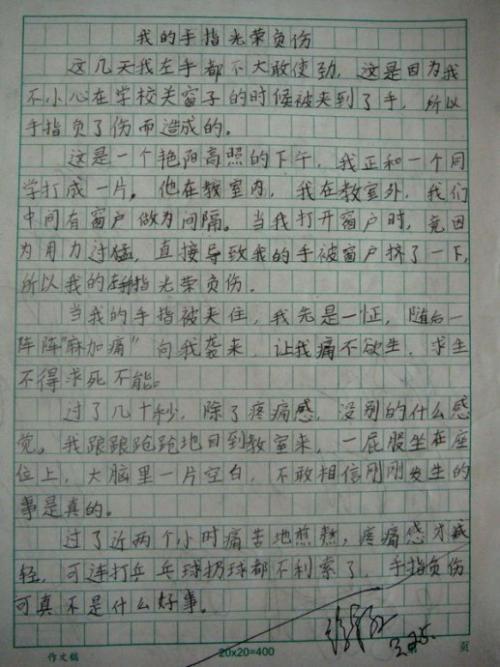 我的手指光荣负伤
这几天我左手都不大敢使劲，这是因为我
不小心在学校关窗子的时候被夹到了手，所以
手指负了伤而造成的。
这是一个艳阳高照的下午，我正和一个同
学打成一片。他在教室内，我在教室外，我们
中间有窗户做为间隔。当我打开窗户时，竟因
为用力过猛，直接导致我的手被窗户挤了一下，
所以我的手指光荣负伤。
当我的手指被夹住，我先是一怔，随后一
阵阵“麻加痛”向我袭来，让我痛不欲生，求生
不得求死不能。
过了几十秒，除了疼痛感，没别的什么感
觉。我踉踉跄跄地回到教室来，一屁股坐在座
位上，大脑里一片空白，不敢相信刚刚发生的
事是真的。
过了近两个小时痛苦地煎熬，疼痛感才减
轻，可连打乒乓球扔球都不利索了，手指负伤
可真不是什么好事。
作文稿
20×20=400
页